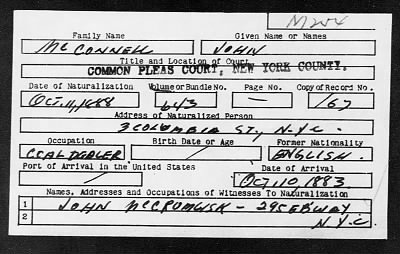 M254
Family Name Given Name or Names
McCONNELL JOHN
Title and Location of Court
COMMON PLEAS COURT, NEW YORK COUNTY.
Date of Naturalization Volume or Bundle No. Page No. Copy of Record No.
OCT. 11, 1888 643 — 167
Address of Naturalized Person
3 COLUMBIA ST., N.Y.C.
Occupation Birth Date or Age Former Nationality
COAL DEALER / ENGLISH.
Port of Arrival in the United States Date of Arrival
/ OCT. 10, 1883
Names, Addresses and Occupations of Witnesses To Naturalization
1 JOHN - 295 E B'WAY
2 N.Y.C.